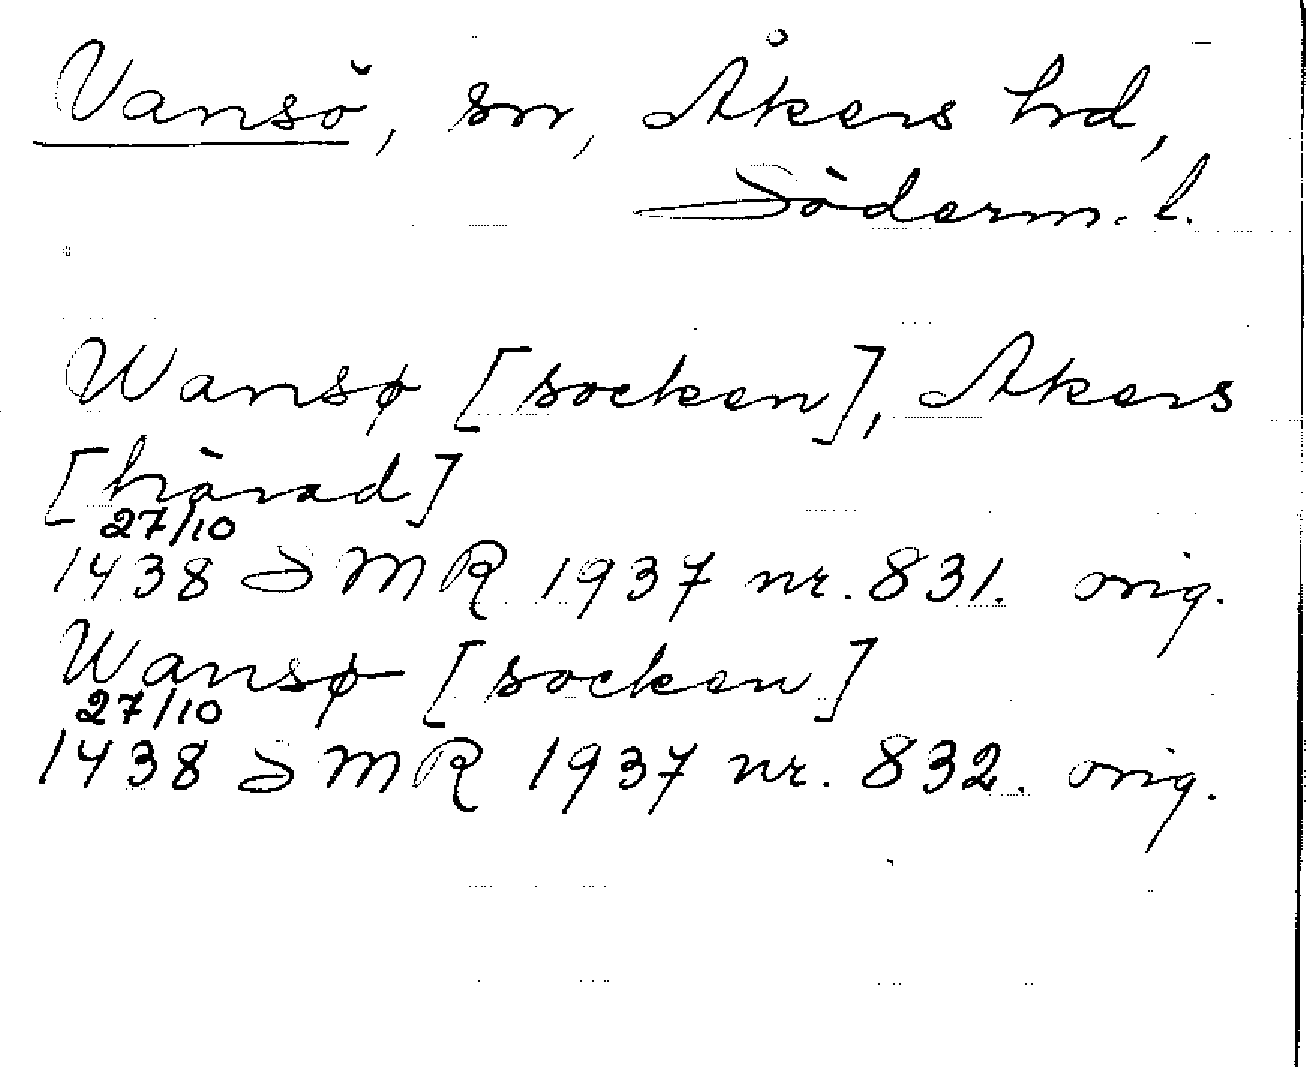 Vansö, sn, Åkers hd,
Söderm. l.
Wansø [socken], Akers
[härad]
27/10
1438 SMR 1937 nr. 831. orig.
Wansø [socken]
27/10
1438 SMR 1937 nr. 832. orig.